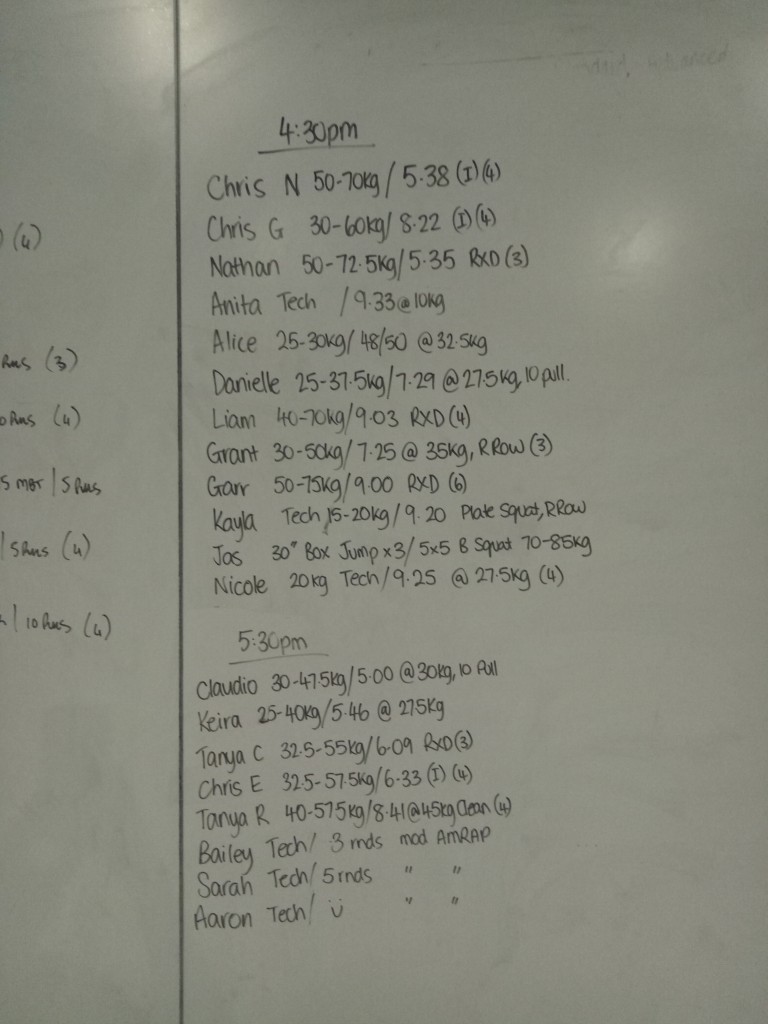 4:30pm
Chris N 50-70kg/ 5.38 (I)(4)
Chris G 30-60kg/ 8.22 (I)(4)
Nathan 50-72.5kg/ 5.35 RXD (3)
Anita Tech / 9.33 @ 10kg
Alice 25-30kg/ 48/50 @ 32.5kg
Danielle 25-37.5kg/ 7.29 @ 27.5kg, 10 pull.
Liam 40-70kg/ 9.03 RXD (4)
Grant 30-50kg/ 7.25 @ 35kg, R Row (3)
Garr 50-75kg/ 9.00 RXD (6)
Kayla Tech, 15-20kg/ 9.20 Plate Squat, R Row
Jas 30" Box Jump x 3/ 5x5 B Squat 70-85kg
Nicole 20kg Tech/ 9.25 @ 27.5kg (4)
5:30pm
Claudio 30-47.5kg/ 5.00 @ 30kg, 10 Pull
Keira 25-40kg/ 5.46 @ 27.5kg
Tanya C 32.5-55kg/ 6.09 RXD (3)
Chris E 32.5-57.5kg/ 6.33 (I) (4)
Tanya R 40-57.5kg/ 8.41 @ 45kg Clean (4)
Bailey Tech/ 3 rnds mod AMRAP
Sarah Tech/ 5 rnds " "
Aaron Tech/ ü " "
(4)
(3)
(4)
5 Rus
/ 5 Rus (4)
/ 10 Rus (4)